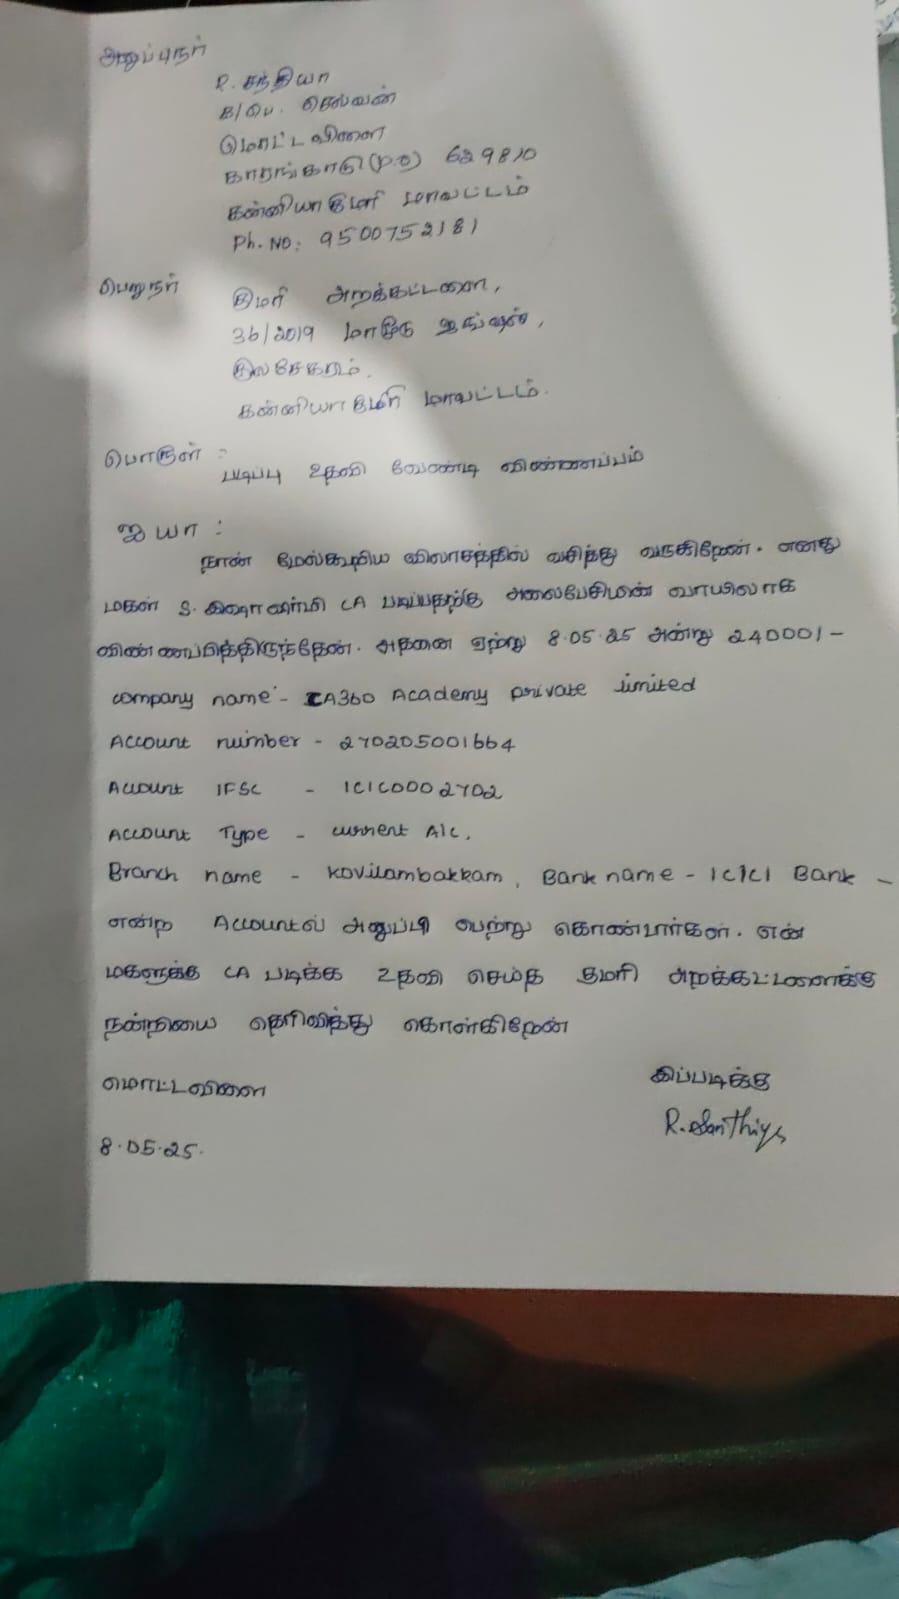 அனுப்புநர்
R. சந்தியா
க/பெ. செல்வன்
மொட்டவிளை
காரங்காடு (P.O) 629810
கன்னியாகுமரி மாவட்டம்
Ph. No: 9500752181
பெறுநர்
குமரி அறக்கட்டளை,
36/2019 மாமூடு ஜங்ஷன்,
குலசேகரம்.
கன்னியாகுமரி மாவட்டம்.
பொருள் :
படிப்பு உதவி வேண்டி விண்ணப்பம்
ஐயா :
நான் மேல்கூறிய விலாசத்தில் வசித்து வருகிறேன். எனது
மகள் S. CA படிப்பதற்கு அலைபேசியின் வாயிலாக
விண்ணப்பித்திருந்தேன். அதனை ஏற்று 8.05.25 அன்று 24000/-
company name - CA360 Academy private limited
Account number - 270205001664
Account IFSC - ICIC0002702
Account Type - current A/c.
Branch name - Kovilambakkam, Bank name - ICICI Bank -
என்ற Accountல் அனுப்பி பெற்று கொண்டார்கள். என்
மகளுக்கு CA படிக்க உதவி செய்த குமரி அறக்கட்டளைக்கு
நன்றியை தெரிவித்து கொள்கிறேன்
மொட்டவிளை
இப்படிக்கு
R. Santhiya
8.05.25.